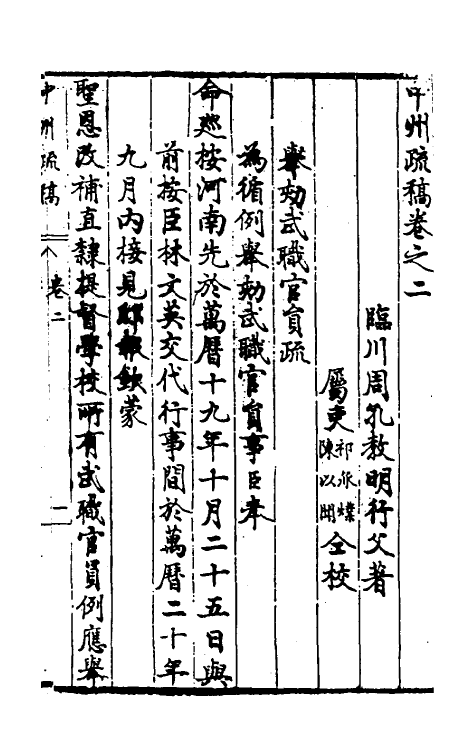 中州疏稿卷之二
臨川周孔教明行父著
屬吏祁承㸁陳以聞仝校
舉劾武職官員疏
為循例舉劾武職官員事臣奉
命廵按河南先於萬曆十九年十月二十五日與
前按臣林文英交代行事間於萬曆二十年
九月內接見邸報欽蒙
聖恩改補直隸提督學校所有武職官員例應舉
中州疏稿 卷二 一